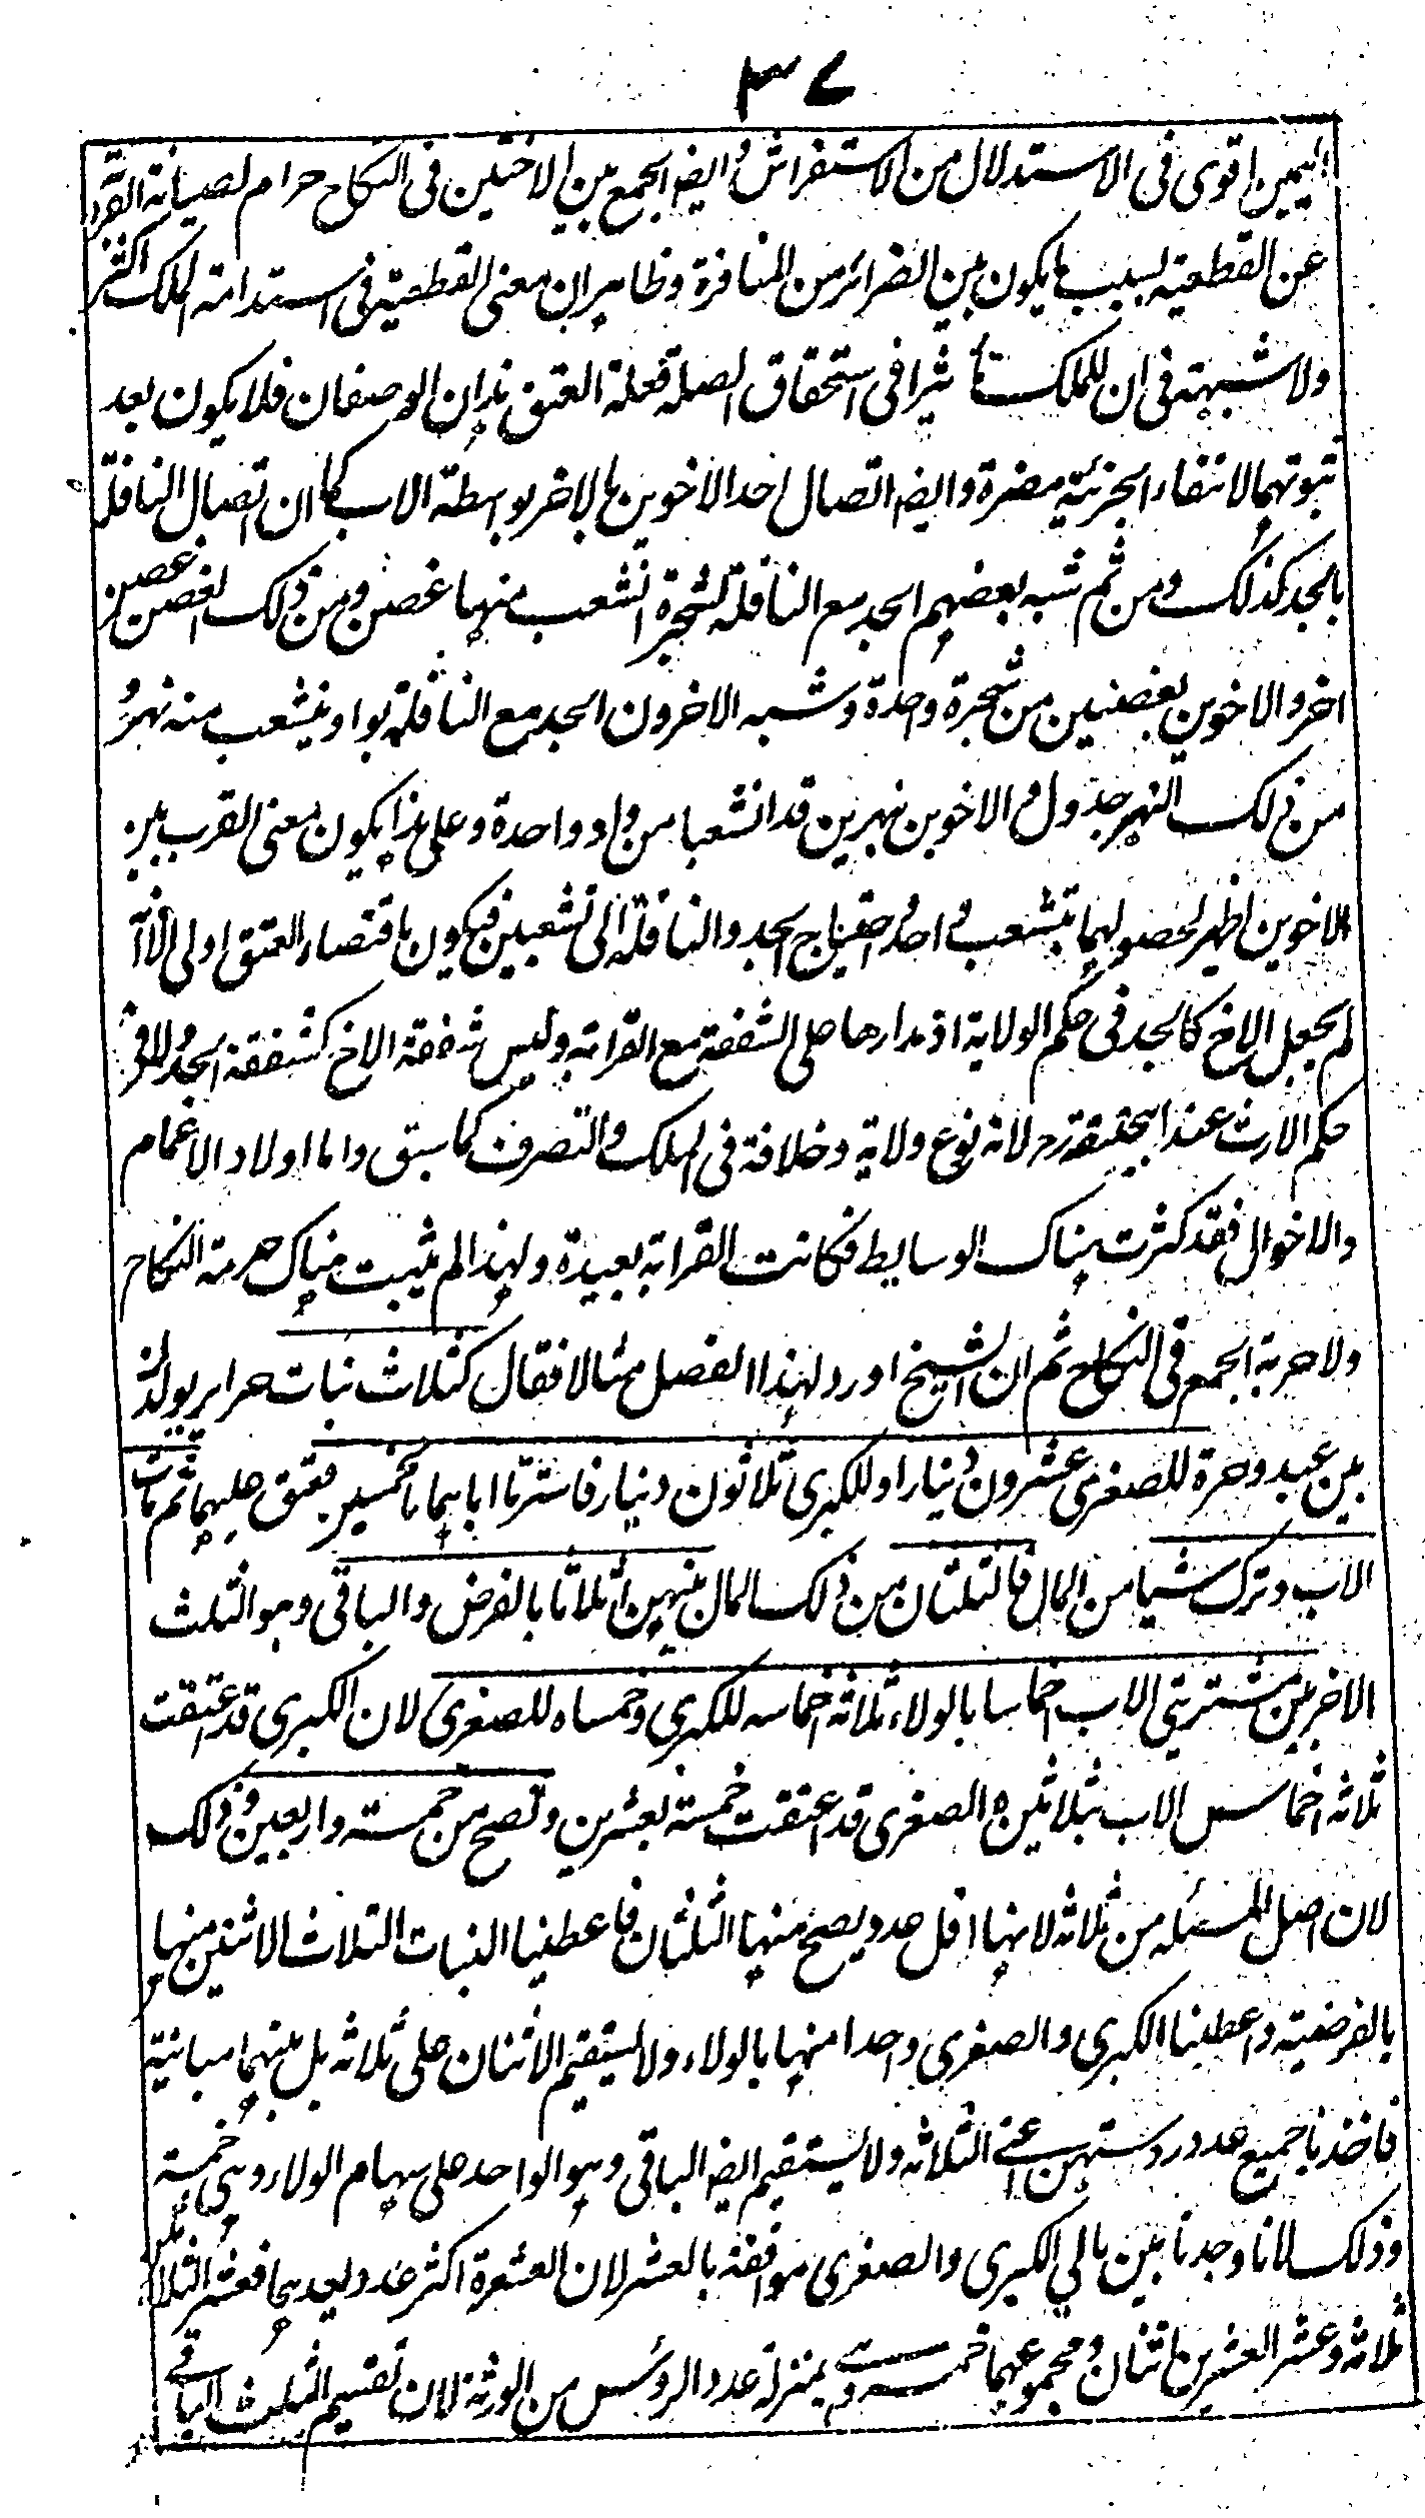 ٣٧
اليمين اقوى فى الاستدلال من الاستفراش وايضا الجمع بين الاختين فى النكاح حرام لصيانة القرابة
عن القطعية بسبب ما يكون بين الضرائر من المنافرة وظاهر ان معنى القطعية فى استدامة الملك اكثر
ولا شبهة فى ان للملك تأثيرا فى استحقاق الصلة فعلة العتق هذان الوصفان فلا يكون بعد
ثبوتهما لانتفاء الجزئية مضرة وايضا اتصال احد الاخوين بالاخر بواسطة الاب كما ان اتصال النافلة
بالجد كذلك ومن ثم شبه بعضهم الجد مع النافلة لشجرة انشعب منها غصن ومن ذلك الغصن غصن
اخر والاخوين بغصنين من شجرة واحدة وشبه الاخرون الجد مع النافلة بواد ينشعب منه نهر و
من ذلك النهر جدول والاخوين نهرين قد انشعبا من واد واحدة وعلى هذا يكون معنى القرب بين
الاخوين اظهر لحصولهما بتشعب واحد واحتياج الجد والنافلة الى تشعبين فيكون باقتضاء العتق اولى الا انا
لم نجعل الاخ كالجد فى حكم الولاية اذ مدارها على الشفقة مع القرابة وليس شفقة الاخ كشفقة الجد ولا فى
حكم الارث عند ابيحنيفة رح لانه نوع ولاية وخلافة فى الملك والتصرف كما سبق واما اولاد الاعمام
والاخوال فقد كثرت هناك الوسايط فكانت القرابة بعيدة ولهذا لم يثبت هناك حرمة النكاح
ولا حرمة الجمع فى النكاح ثم ان الشيخ اورد لهذا الفصل مثالا فقال كثلاث بنات حراير يولدن
بين عبد وحرة للصغرى عشرون دينارا وللكبرى ثلاثون دينار فاشترتا اباهما بالخمسين فعتق عليهما ثم مات
الاب وترك شيئا من المال فالثلثان من ذلك المال بينهن اثلاثا بالفرض والباقى وهو الثلث
الاخر بين مشتريتى الاب اخماسا بالولاء ثلاثة اخماسه للكبرى وخمساه للصغرى لان الكبرى قد اعتقت
ثلاثة اخماس الاب بثلاثين والصغرى قد اعتقت خمسة بعشرين وتصح من خمسة واربعين وذلك
لان اصل المسئله من ثلاثة لانها اقل عدد يصح منها الثلثان فاعطينا البنات الثلاث الاثنين منها
بالفرضية واعطينا الكبرى والصغرى واحدا منها بالولاء ولا يستقيم الاثنان على ثلاثة بل بينهما مباينة
فاخذنا جميع عدد رؤسهن اعنى الثلاثه ولا يستقيم ايضا الباقى وهو الواحد على سهام الولاء وهى خمسة
وذلك لانا وجدنا بين مالي الكبرى والصغرى موافقة بالعشر لان العشرة اكثر عدد يعدهما فعشر الثلاثين
ثلاثة وعشر العشرين اثنان ومجموعهما خمسة وهى بمنزلة عدد الرؤس من الورثة لان تقسيم الثلث الباقى